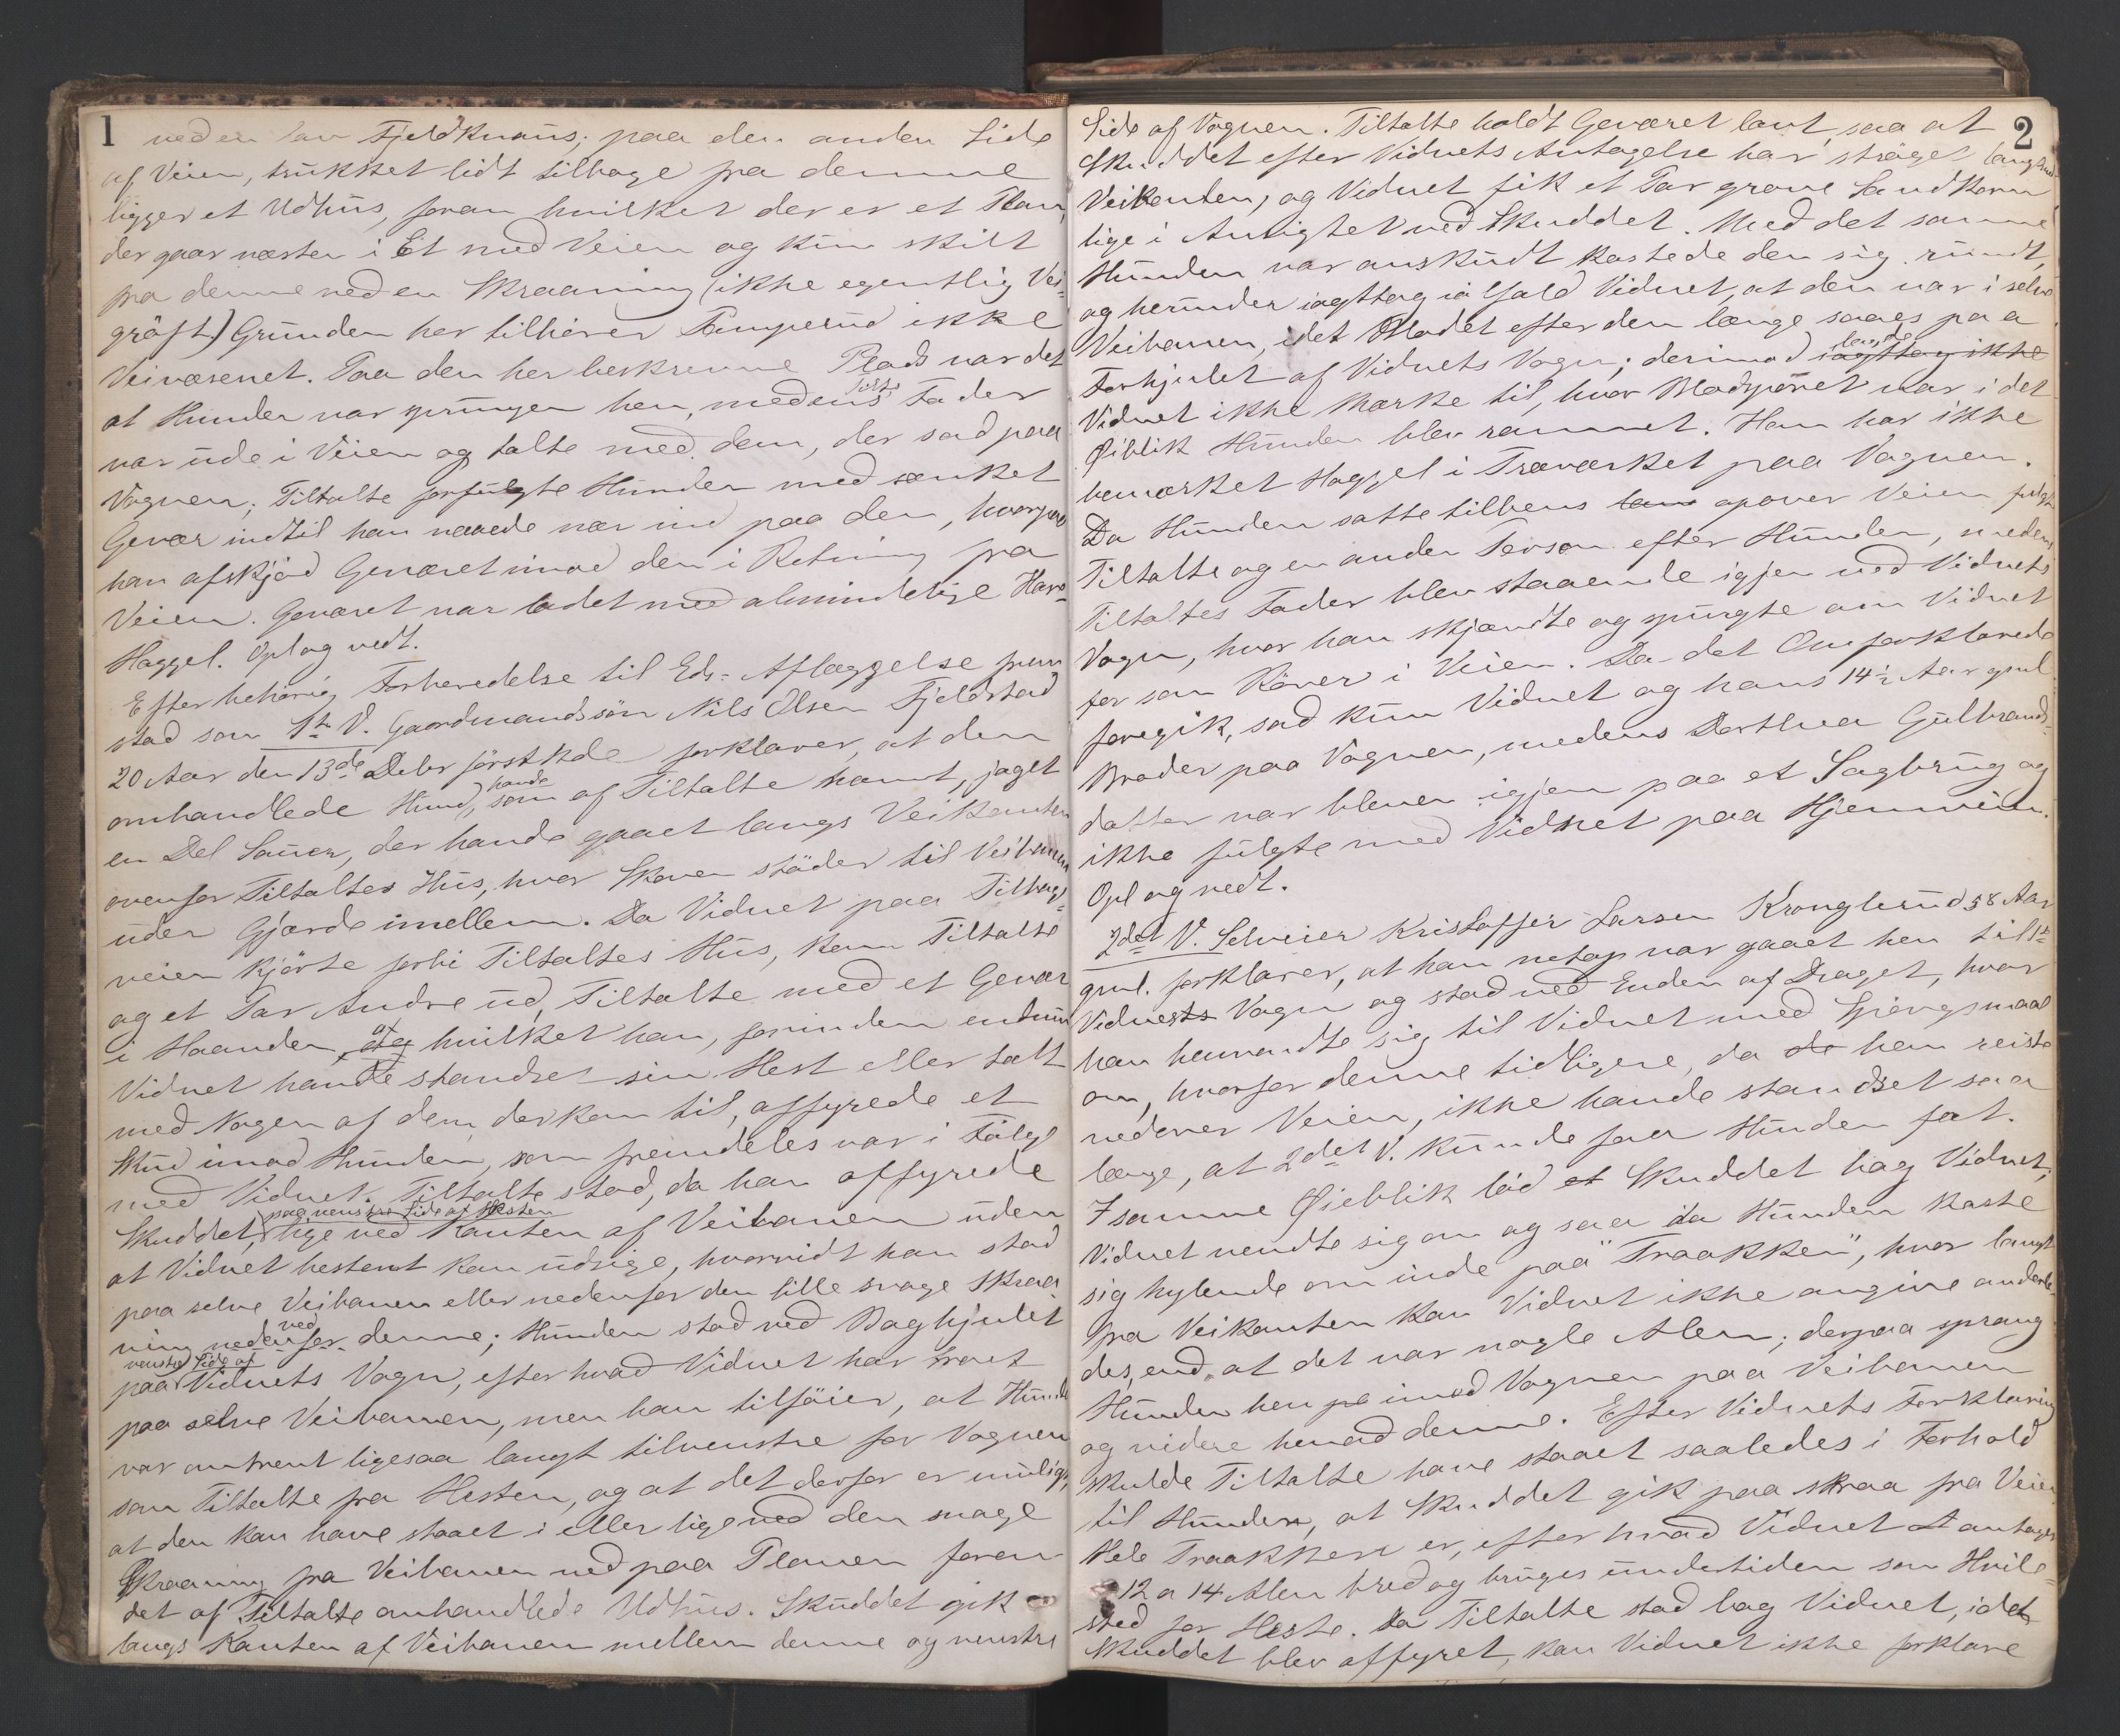 1
ved en lav Fjeldknaus; paa den anden Side
af Veien, trukket lidt tilbage fra denne
ligger et Udhus, foran hvilket der er et Plan,
der gaar næsten i Et med Veien og kun skilt
fra denne ved en Skraaning (ikke egentlig Vei-
grøft) Grunden her tilhører Tømperud ikke
Veivæsenet. Paa den her beskrevne Plads var det
at Hunden var sprungen hen, medens Tilts Fader
var ude i Veien og talte med dem, der sad paa
Vognen; Tiltalte forfulgte Hunden med sænket
Gevær indtil han naaede nær ind paa den, hvorpaa
han afskjød Geværet imod den i Retning fra
Veien. Geværet var ladet med almindelige Hare-
Haggel. Opl og vedt.
Efter behørig Forberedelse til Eds-Aflæggelse frem
stod som 1ste V. Gaardmandssøn Nils Olsen Fjeldstad
20 Aar den 13de Debr førstkde forklarer, at den
omhandlede Hund, som havde af Tiltalte hamt, jaget
en Del Sauer, der havde gaaet langs Veikanten
ovenfor Tiltaltes Hus, hvor Skoven støder til Veibanen
uden Gjærde imellem. Da Vidnet paa Tilbage-
veien kjørte forbi Tiltaltes Hus, kom Tiltalte
og et Par Andre ud, Tiltalte med et Gevær
i Haanden, og af hvilket han, forinden endnu
Vidnet havde standset sin Hest eller talt
med Nogen af dem, der kom til, affyrede et
Skud imod Hunden, som fremdeles var i Følge
med Vidnet. Tiltalte stod, da han affyrede
Skuddet, paa venstre Side af Hesten lige ved Kanten af Veibanen uden
at Vidnet bestemt kan udsige, hvorvidt han stod
paa selve Veibanen eller nedenfor den lille svage Skraa
ning nedenfor ved denne; Hunden stod ved Baghjulet
paa venstre Side af Vidnets Vogn, efter hvad Vidnet har troet
paa selve Veibanen, men han tilføier, at Hunden
var omtrent ligesaa langt tilvenstre for Vognen
som Tiltalte fra Hesten, og at det derfor er muligt,
at den kan have staaet i eller lige ved den svage
Skraaning fra Veibanen ned paa Planen foran
det af Tiltalte omhandlede Udhus. Skuddet gik
langs Kanten af Veibanen mellem denne og venstre
2
Side af Vognen. Tiltalte holdt Geværet lavt saa at
Skuddet efter Vidnets Antagelse har strøget langs
Veikanten, og Vidnet fik et Par grove Sandkorn
lige i Ansigtet ved Skuddet. Med det samme
Hunden var anskudt kastede den sig rundt,
og herunder iagttog ialfald Vidnet, at den var i selve
Veibanen, idet Blodet efter den længe saaes paa
Forhjulet af Vidnets Vogn; derimod iagttog ikke lagde
Vidnet ikke Mærke til, hvor Blodsporet var i det
Øiblik Hunden blev rammet. Han har ikke
bemærket Haggel i Træværket paa Vognen.
Da Hunden satte tilbens lang opover Veien fulgte
Tiltalte og en anden Person efter Hunden, medens
Tiltaltes Fader blev staaende igjen ved Vidnets
Vogn, hvor han skjændte og spurgte om Vidnet
for som Røver i Veien. Da det Omforklarede
foregik, sad kun Vidnet og hans 14½ Aar gml
Broder paa Vognen, medens Dorthea Gulbrands-
datter var bleven igjen paa et Sagbrug og
ikke fulgte med Vidnet paa Hjemveien.
Opl og vedt.
2det V. Selveier Kristoffer Larsen Kronglerud 58 Aar
gml. forklarer, at han netop var gaaet hen til 1ste
Vidnets Vogn og stod ved Enden af Draget, hvor
han henvendte sig til Vidnet med Spørgsmaal
om, hvorfor denne tidligere, da de han reiste
nedover Veien, ikke havde standset saa
længe, at 2det V. kunde faa Hunden fat.
I samme Øieblik lød et Skuddet bag Vidnet;
Vidnet vendte sig om og saa da Hunden kaste
sig hylende om inde paa "Traakken", hvor langt
fra Veikanten kan Vidnet ikke angive anderle-
des, end at det var nogle Alen; derpaa sprang
Hunden hen pa imod Vognen paa Veibanen
og videre henad denne. Efter Vidnets Forklaring
skulde Tiltalte have staaet saaledes i Forhold
til Hunden, at Skuddet gik paa skraa fra Veien
Hele Traakken er, efter hvad Vidnet antager
12 a 14 Alen bred og bruges undertiden som Hvile-
sted for Heste. Da Tiltalte stod bag Vidnet, idet
Skuddet blev affyret, kan Vidnet ikke forklare